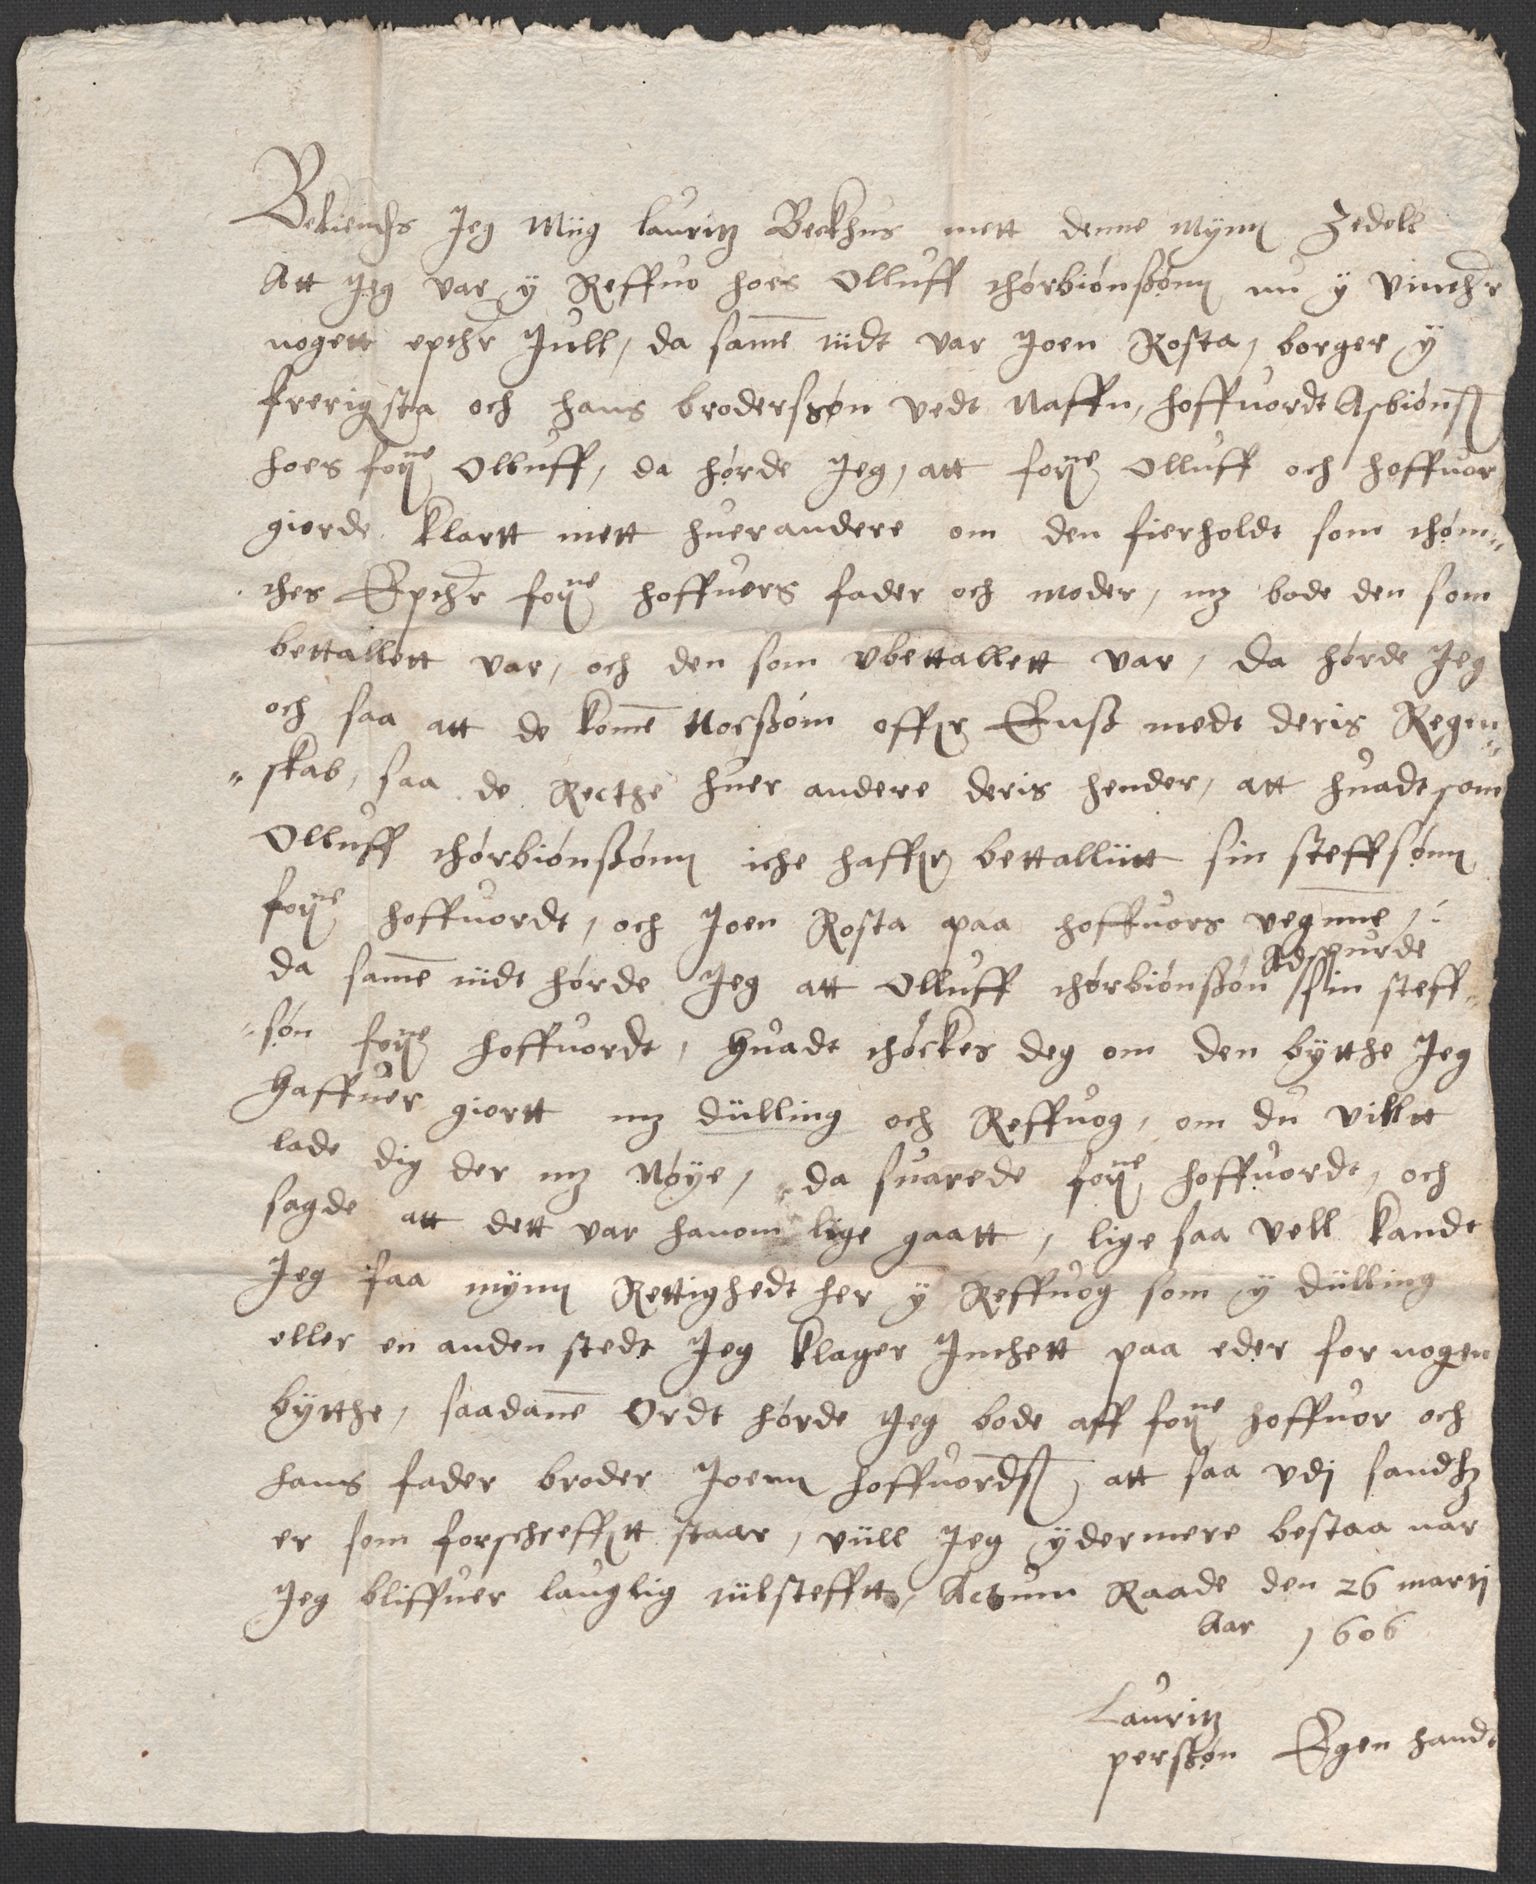 Bekiendis Jeg Miig lauritz Beckhus mett denne Mynn Zedell
Att Jeg var y Reffuo hoes Olluff thórbiónßónn nu y vinther
nogett epther Jull, da samē tiidt var Joen Rosta, borger y
frerigsta och hans brodersßøn vedt Naffn, hoffuordt Asbiónß
hoes forne Olluff, da hórde Jeg, att forne Olluff och hoffuor
giorde klartt mett huerandere om den fierholdt som thóm„
thes Epther forne hoffuers fader och moder, mz bode den som
bettallett var, och den som vbettallett var, da hórde Jeg
och saa att de komē Nocßóm offuer Enß medt deris Regen„
„skab, saa de Recthe huer andere deris hender, att huadt som
Olluff thórbiónßónn iche haffuer bettalliitt sin steffsónn
forne hoffuordt, och Joen Rosta paa hoffuors vegnne,
da samē tiidt hórde Jeg att Olluff thórbiónßón Adspurde sin steff„
„søn forne hoffuordt, Huadt thóckes deg om den bytthe Jeg
Haffuer giortt mz dülling och Reffuog, om du villtt
lade dig der mz Nóye, da suarede forne hoffuordt, och
sagde att dett var hanom lige gaatt, lige saa vell kandt
Jeg faa mynn Rettighedt her y Reffuog som y dülling
eller en anden stedt Jeg klager Jnthett paa eder for nogen
bytthe, saadanē Ordt hórde Jeg bode aff forne hoffuor och
hans fader broder Joenn hoffuordß, att saa vdj sandhz
er som forschreffuitt staar, viill Jeg ydermere bestaa nar
Jeg bliffuer lauglig tiilstefftt, Actum Raade den 26 martj
Aar 1606
Lauritz
persßøn Egen handt